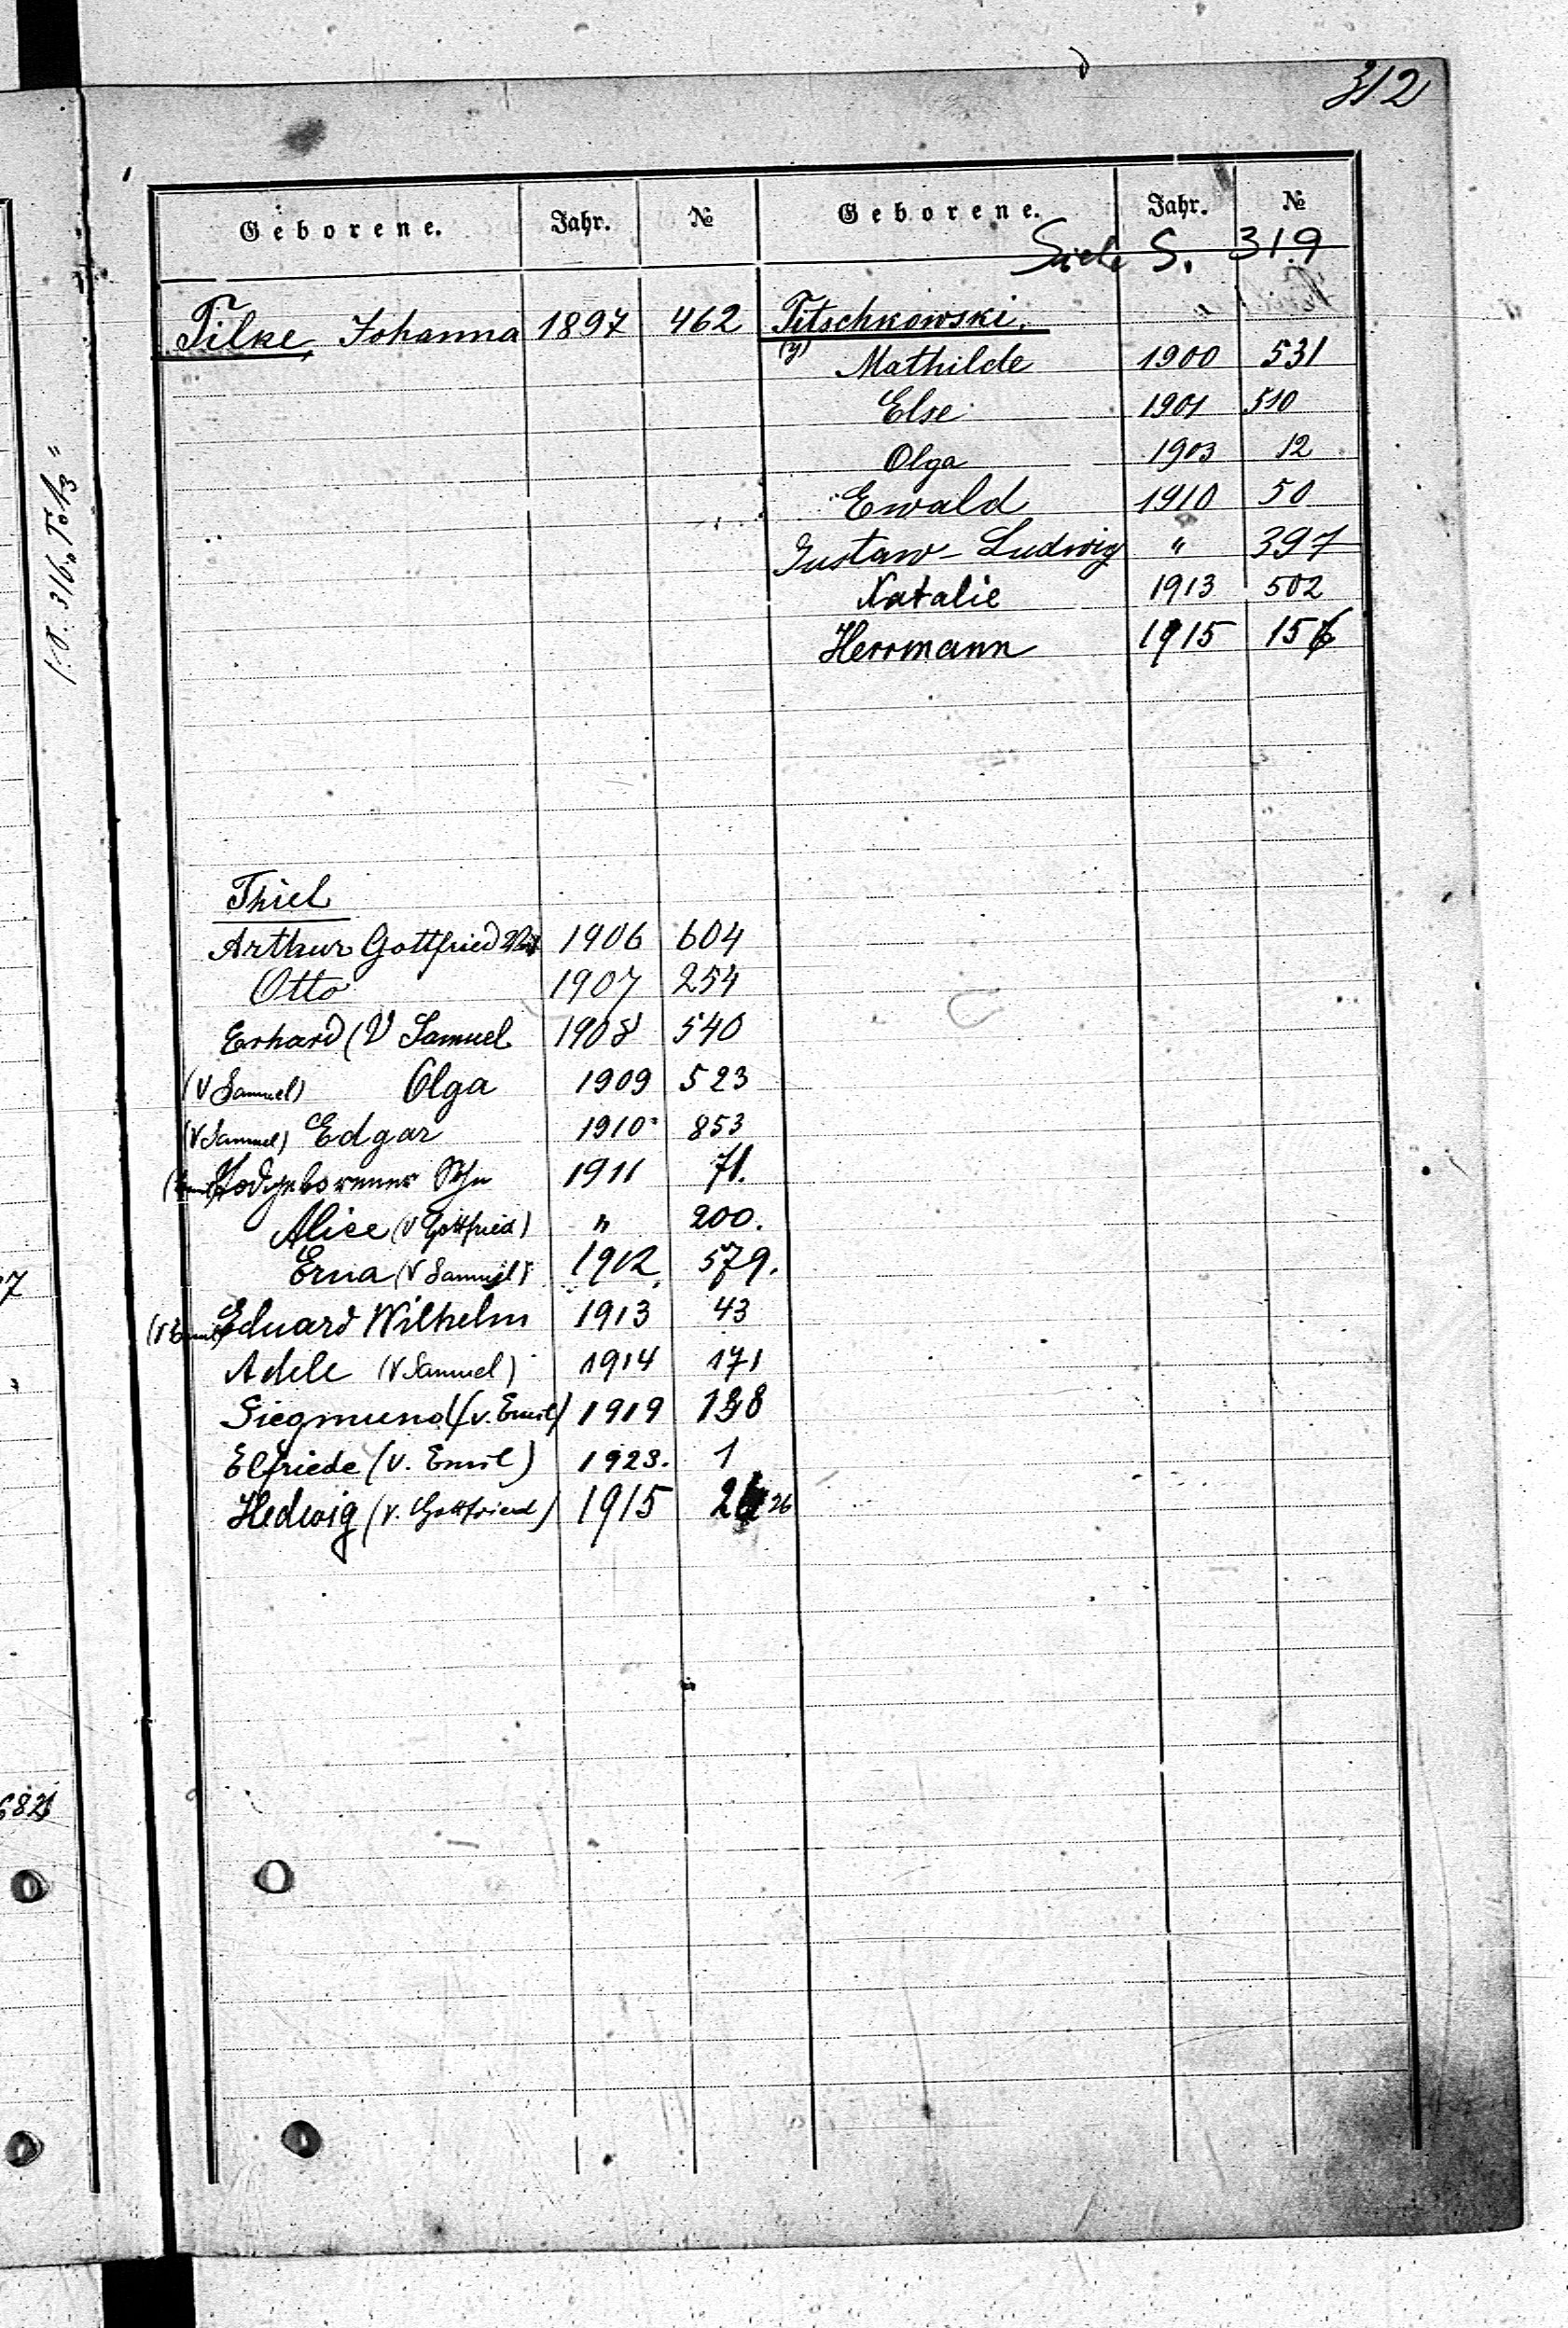 312
Geborene. Jahr. №
Tilke, Johanna 1897 462
Thiel
Arthur Gottfried 1906 604
Otto 1907 254
Erhard (V Samuel 1908 540
(V Samuel) Olga 1909 523
(V Samuel) Edgar 1910 853
Todgeborener 1911 71.
Alice (V Gottfried) " 200.
Erna (V Samuel) 1912 579.
(V Emil) Eduard Wilhelm 1913 43
Adele (V Samuel) 1914 171
Siegmund (v. Emil) 1919
Elfriede (v. Emil) 1923. 1
Hedwig (v. Gottfried) 1915 26
Geborene. Jahr. №
Siehe S. 319
Titschkowski.
(y) Mathilde 1900 531
Else 1901 510
Olga 1903 12
Ewald 1910 50
Gustaw-Ludwig " 397
Natalie 1913 502
Herrmann 1915 156